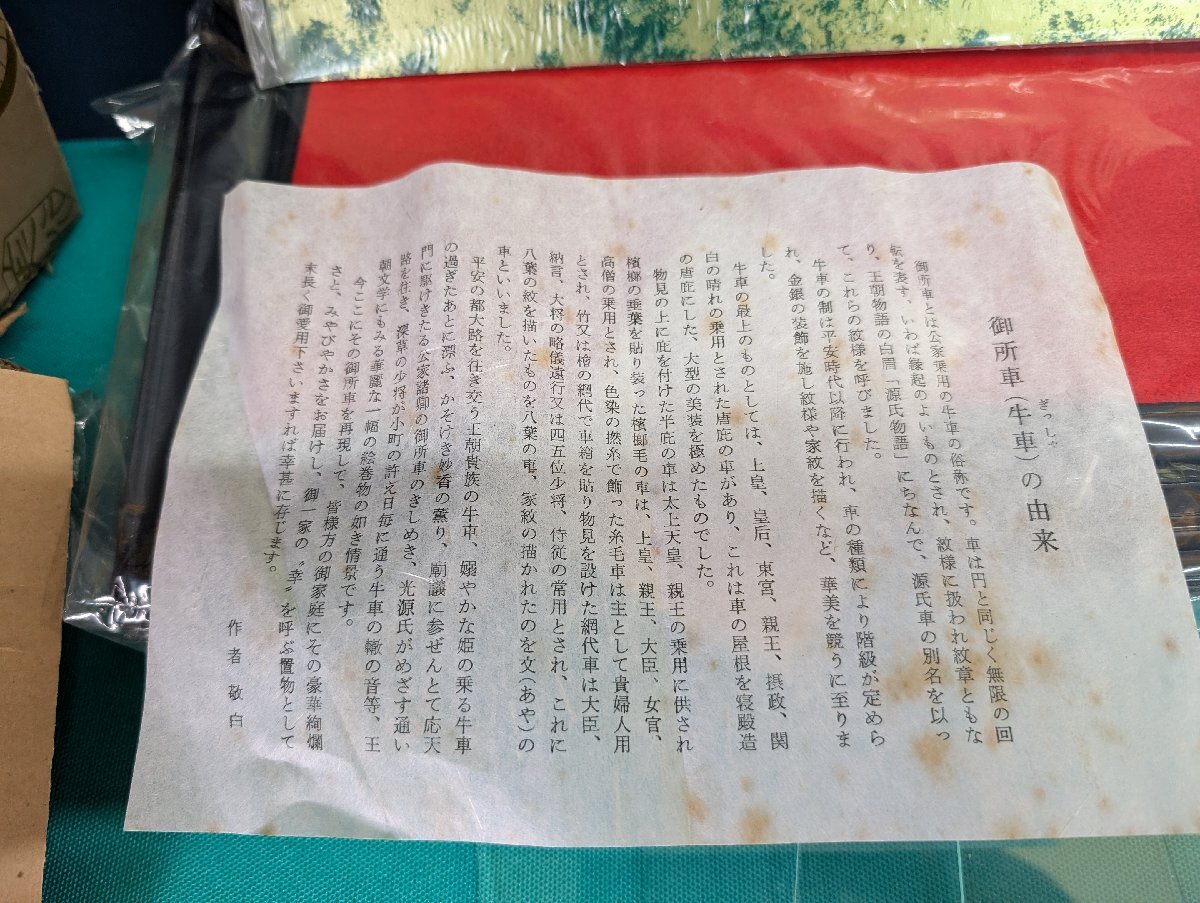 御所車(牛車)の由来
ぎっしゃ
御所車とは公家乗用の牛車の俗称です。車は円と同じく無限の回
転を表す、いわば縁起のよいものとされ、紋様に扱われ紋章ともな
り、王朝物語の白眉「源氏物語」にちなんで、源氏車の別名を以っ
て、これらの紋様を呼びました。
牛車の制は平安時代以降に行われ、車の種類により階級が定めら
れ、金銀の装飾を施し紋様や家紋を描くなど、華美を競うに至りま
した。
牛車の最上のものとしては、上皇、皇后、東宮、親王、摂政、関
白の晴れの乗用とされた唐庇の車があり、これは車の屋根を寝殿造
の唐庇にした、大型の美装を極めたものでした。
物見の上に庇を付けた半庇の車は太上天皇、親王の乗用に供され
檳榔の垂葉を貼り装った檳榔毛の車は、上皇、親王、大臣、女官、
高僧の乗用とされ、色染の撚糸で飾った糸毛車は主として貴婦人用
とされ、竹又は檜の網代で車箱を貼り物見を設けた網代車は大臣、
納言、大将の略儀遠行又は四五位少将、侍従の常用とされ、これに
八葉の紋を描いたものを八葉の車、家紋の描かれたのを文(あや)の
車といいました。
平安の都大路を往き交う王朝貴族の牛車、嫋やかな姫の乗る牛車
の過ぎたあとに漂ふ、かそけき妙香の薫り、朝議に参ぜんとて応天
門に駆けきたる公家諸卿の御所車のきしめき、光源氏がめざす通い
路を往き、深草の少将が小町の許え日毎に通う牛車の轍の音等、王
朝文学にもみる華麗な一幅の絵巻物の如き情景です。
今ここにその御所車を再現して、皆様方の御家庭にその豪華絢爛
さと、みやびやかさをお届けし、御一家の〝幸〟を呼ぶ置物として
末長く御愛用下さいますれば幸甚に存じます。
作者敬白